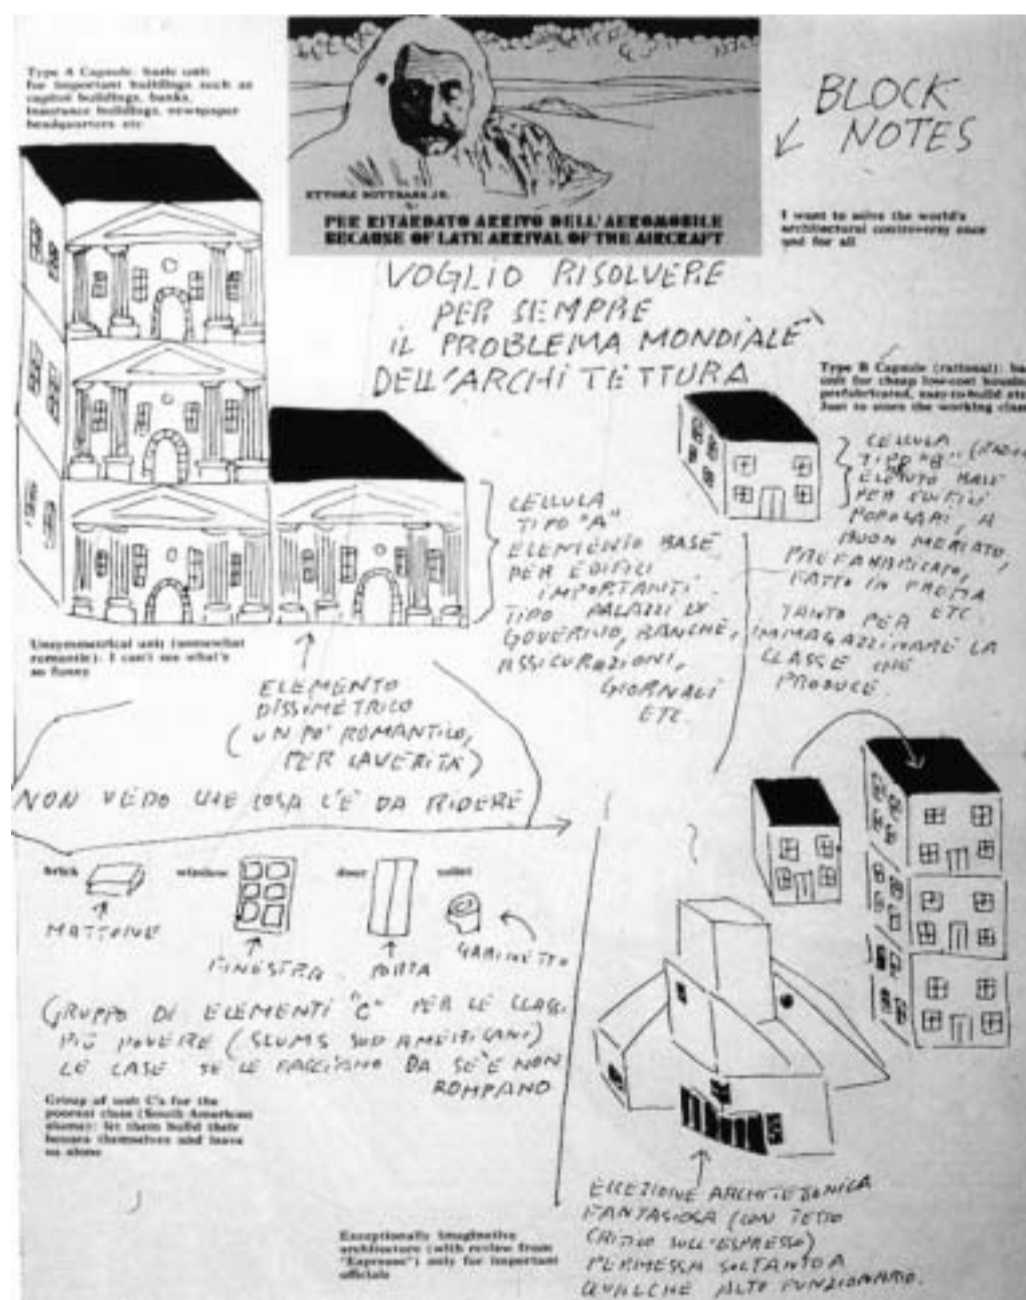 Type A Capsule: basic unit
for important buildings such as
capitol buildings, banks,
insurance buildings, newspaper
headquarters etc
ETTORE SOTTSASS JR.
PER RITARDATO ARRIVO DELL'AEROMOBILE
BECAUSE OF LATE ARRIVAL OF THE AIRCRAFT
BLOCK
NOTES
I want to solve the world's
architectural controversy once
and for all
VOGLIO RISOLVERE
PER SEMPRE
IL PROBLEMA MONDIALE
DELL'ARCHITETTURA
Type B Capsule (rational): ba
unit for cheap low-cost housin
prefabricated, easy-to-build etc
Just to store the working clas
CELLULA
TIPO "B"
ELEMENTO BASE
PER EDIFICI
POPOLARI, A
BUON MERCATO,
PREFABBRICATO,
FATTO IN FRETTA
ETC
TANTO PER
IMMAGAZZINARE LA
CLASSE CHE
PRODUCE.
CELLULA
TIPO "A"
ELEMENTO BASE
PER EDIFICI
IMPORTANTI
TIPO PALAZZI DI
GOVERNO, BANCHE,
ASSICURAZIONI,
GIORNALI
ETC.
Unsymmetrical unit (somewhat
romantic): I can't see what's
so funny
ELEMENTO
DISSIMETRICO
(UN PO' ROMANTICO,
PER LA VERITÀ)
NON VEDO CHE COSA C'È DA RIDERE
brick window door toilet
MATTONE
FINESTRA PORTA GABINETTO
GRUPPO DI ELEMENTI "C" PER LE CLASSI
PIÙ POVERE (SLUMS SUD AMERICANI)
LE CASE SE LE FACCIANO DA SÉ E NON
ROMPANO
Group of unit C's for the
poorest class (South American
slums): let them build their
houses themselves and leave
us alone
Exceptionally imaginative
architecture (with review from
"Espresso") only for important
officials
ECCEZIONE ARCHITETTONICA
FANTASIOSA (CON TESTO
CRITICO SULL'ESPRESSO)
PERMESSA SOLTANTO A
QUALCHE ALTO FUNZIONARIO.